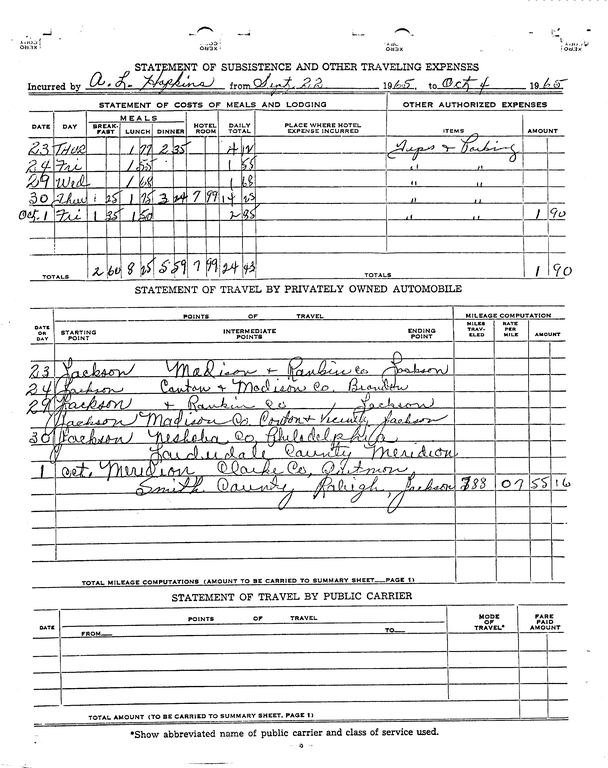 STATEMENT OF SUBSISTENCE AND OTHER TRAVELING EXPENSES
Incurred by A. L. Hopkins from Sept. 22 1965, to Oct 4 1965
STATEMENT OF COSTS OF MEALS AND LODGING OTHER AUTHORIZED EXPENSES
DATE DAY MEALS BREAK-FAST LUNCH DINNER HOTEL ROOM DAILY TOTAL PLACE WHERE HOTEL EXPENSE INCURRED ITEMS AMOUNT
23 Thur 1 77 2 35 4 12 Tips & Parking
24 Fri 1 55 1 55 " "
29 Wed 1 68 1 68 " "
30 Thur 1 25 1 75 3 24 7 99 14 23 " "
Oct. 1 Fri 1 35 1 50 2 85 " " 1 90
TOTALS 2 60 8 25 5 59 7 99 24 43 TOTALS 1 90
STATEMENT OF TRAVEL BY PRIVATELY OWNED AUTOMOBILE
POINTS OF TRAVEL MILEAGE COMPUTATION
DATE OR DAY STARTING POINT INTERMEDIATE POINTS ENDING POINT MILES TRAV-ELED RATE PER MILE AMOUNT
23 Jackson Madison & Rankin Co Jackson
24 Jackson Canton & Madison Co. Brandon
29 Jackson & Rankin Co, Jackson
Jackson Madison Co. Canton & Vicinity Jackson
30 Jackson Neshoba Co, Philadelphia
Lauderdale County Meridian
1 Oct. Meridian Clarke Co, Quitman,
Smith County Raleigh, Jackson 788 07 55 16
TOTAL MILEAGE COMPUTATIONS (AMOUNT TO BE CARRIED TO SUMMARY SHEET PAGE 1)
STATEMENT OF TRAVEL BY PUBLIC CARRIER
DATE POINTS OF TRAVEL MODE OF TRAVEL* FARE PAID AMOUNT
FROM TO
TOTAL AMOUNT (TO BE CARRIED TO SUMMARY SHEET, PAGE 1)
*Show abbreviated name of public carrier and class of service used.